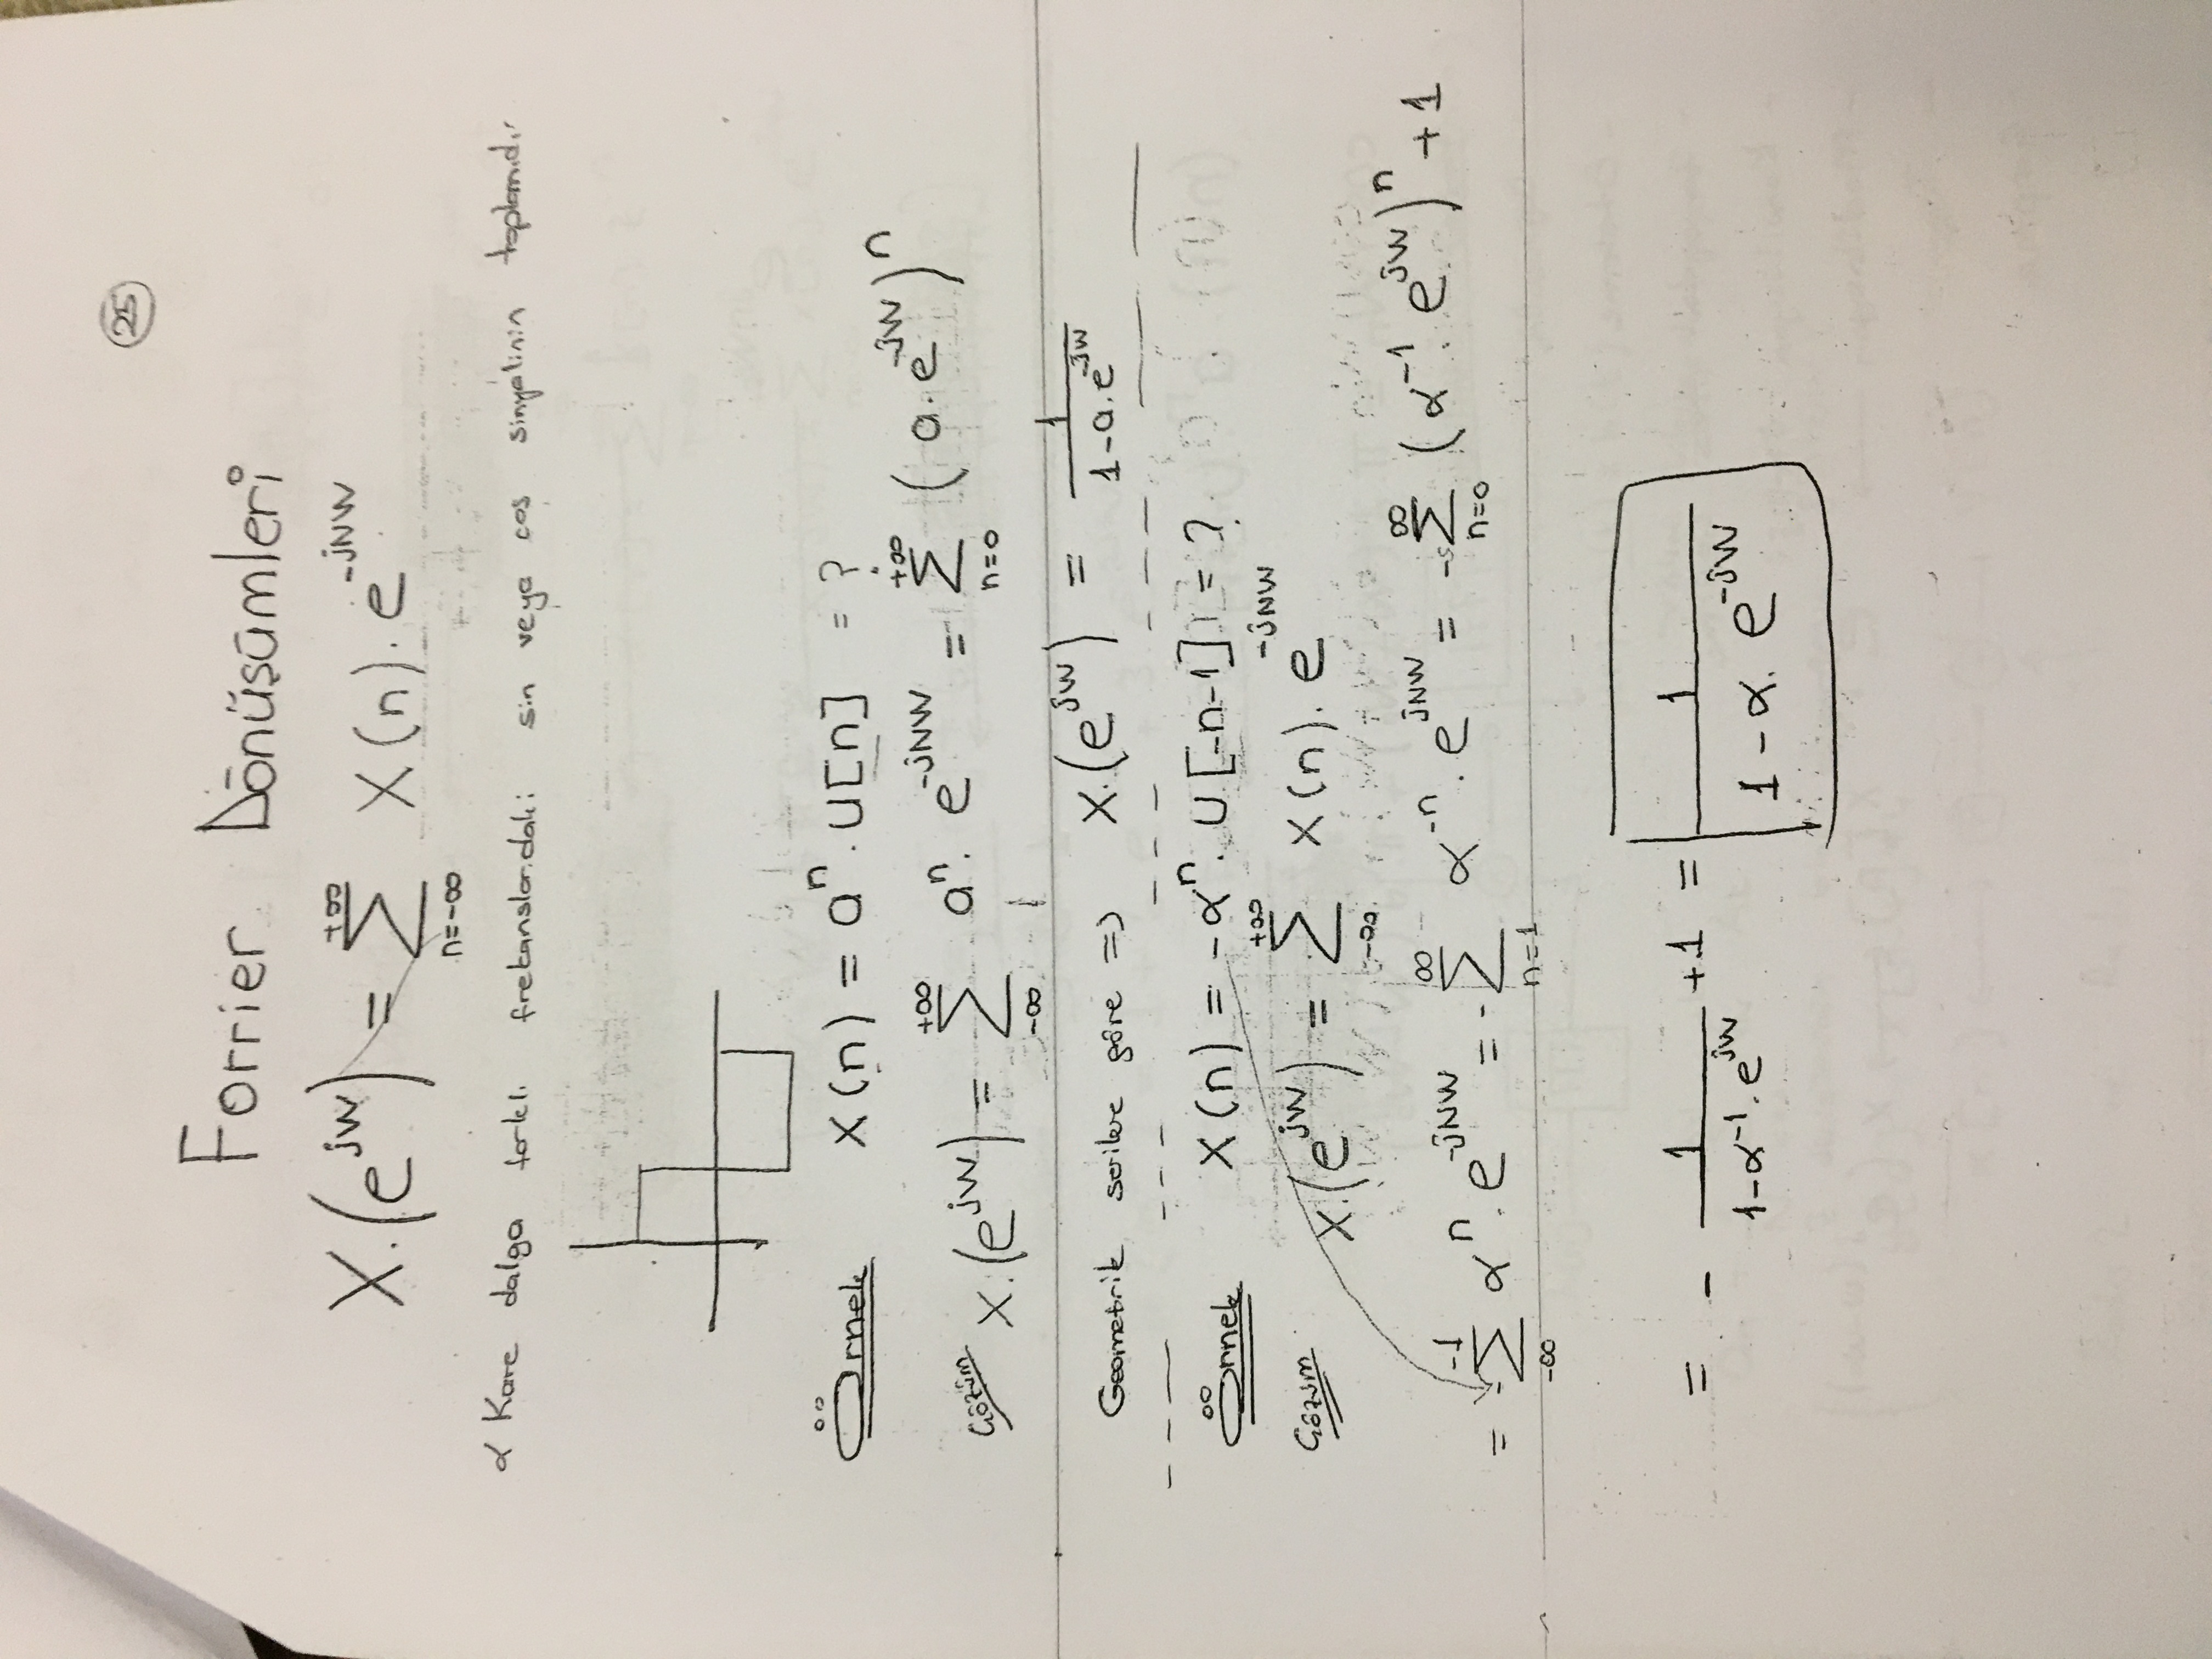 25
Forrier Dönüşümleri
X.(e^jW) = +∞ ∑ n=-∞ X(n).e^-jNW
α Kare dalga farklı frekanslardaki sin veya cos sinyalinin toplamıdır
Örnek X(n) = a^n.U[n] = ?
Çözüm X.(e^jW) = +∞ ∑ -∞ a^n.e^-jNW = +∞ ∑ n=0 (a.e^-jW)^n
Geometrik serilere göre => X.(e^jW) = 1 / 1-a.e^-jW
Örnek X(n) = -α^n.U[-n-1] = ?
Çözüm X.(e^jW) = +∞ ∑ -∞ X(n).e^-jNW
= - -1 ∑ -∞ α^n.e^-jNW = - ∞ ∑ n=1 α^-n.e^jNW = - ∞ ∑ n=0 (α^-1.e^jW)^n +1
= - 1 / 1-α^-1.e^jW +1 = 1 / 1-α.e^-jW